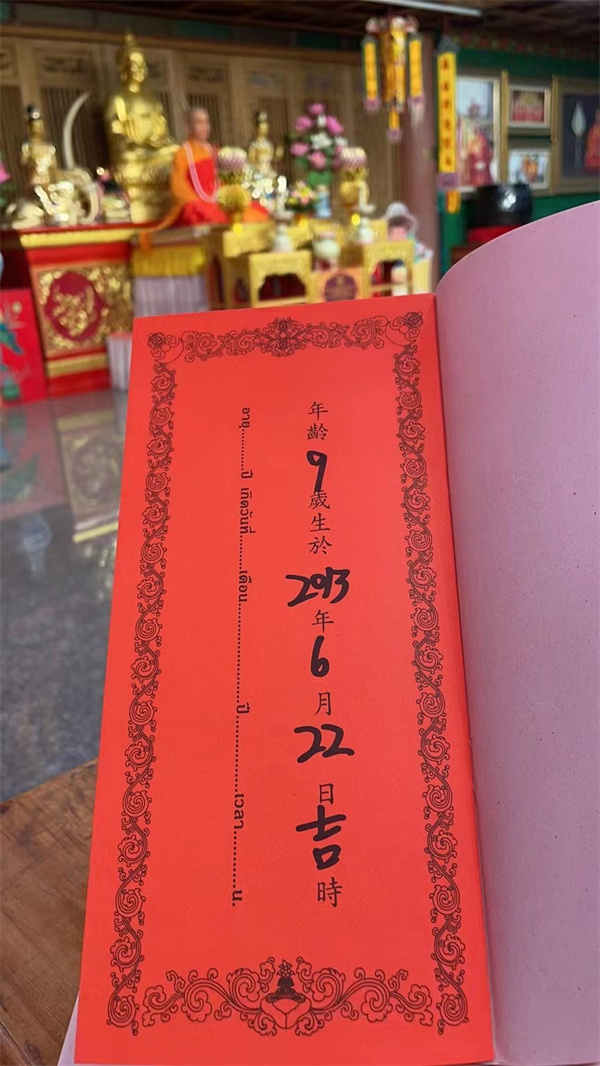 年齡9歲生於2013年6月22日吉時
อายุ........ปี เกิดวันที่........เดือน....................ปี..............เวลา............น.